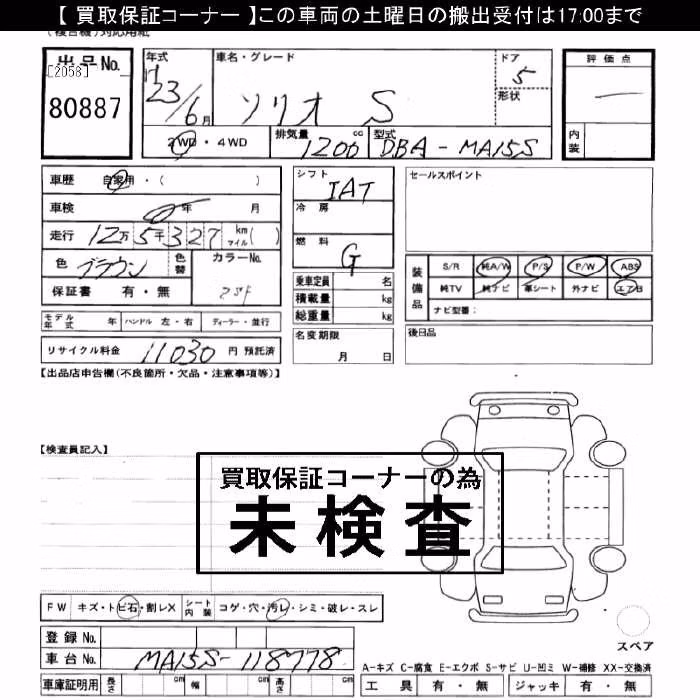 【 買取保証コーナー 】この車両の土曜日の搬出受付は17:00まで
(複合機)対応用紙
出品No. 年式 車名・グレード ドア 評価点
[2058]
80887 23/6月 ソリオ S 5
形状
2WD・4WD 排気量 1200 cc 型式 DBA-MA15S 内装
車歴 自家用・( ) シフト IAT セールスポイント
車検 年 月 冷房
走行 12万5千327 km マイル( )
燃料 G
色 ブラウン 色替 カラーNo. 装備品 S/R 純A/W P/S P/W ABS
保証書 有・無 ZSF 乗車定員 名 純TV 純ナビ 革シート 外ナビ エアB
積載量 kg ナビ型番:
モデル年式 年 ハンドル 左・右 ディーラー・並行 総重量 kg
リサイクル料金 11030 円 預託済 名変期限 月 日 後日品
【出品店申告欄(不良箇所・欠品・注意事項等)】
【検査員記入】
買取保証コーナーの為
未検査
FW キズ・トビ石・割レX シート内装 コゲ・穴・汚レ・シミ・破レ・スレ
登録No. スペア
車台No. MA15S-118778
A-キズ C-腐食 E-エクボ S-サビ U-凹ミ W-補修 XX-交換済
車庫証明用 長さ cm 幅 cm 高さ cm 工具 有・無 ジャッキ 有・無